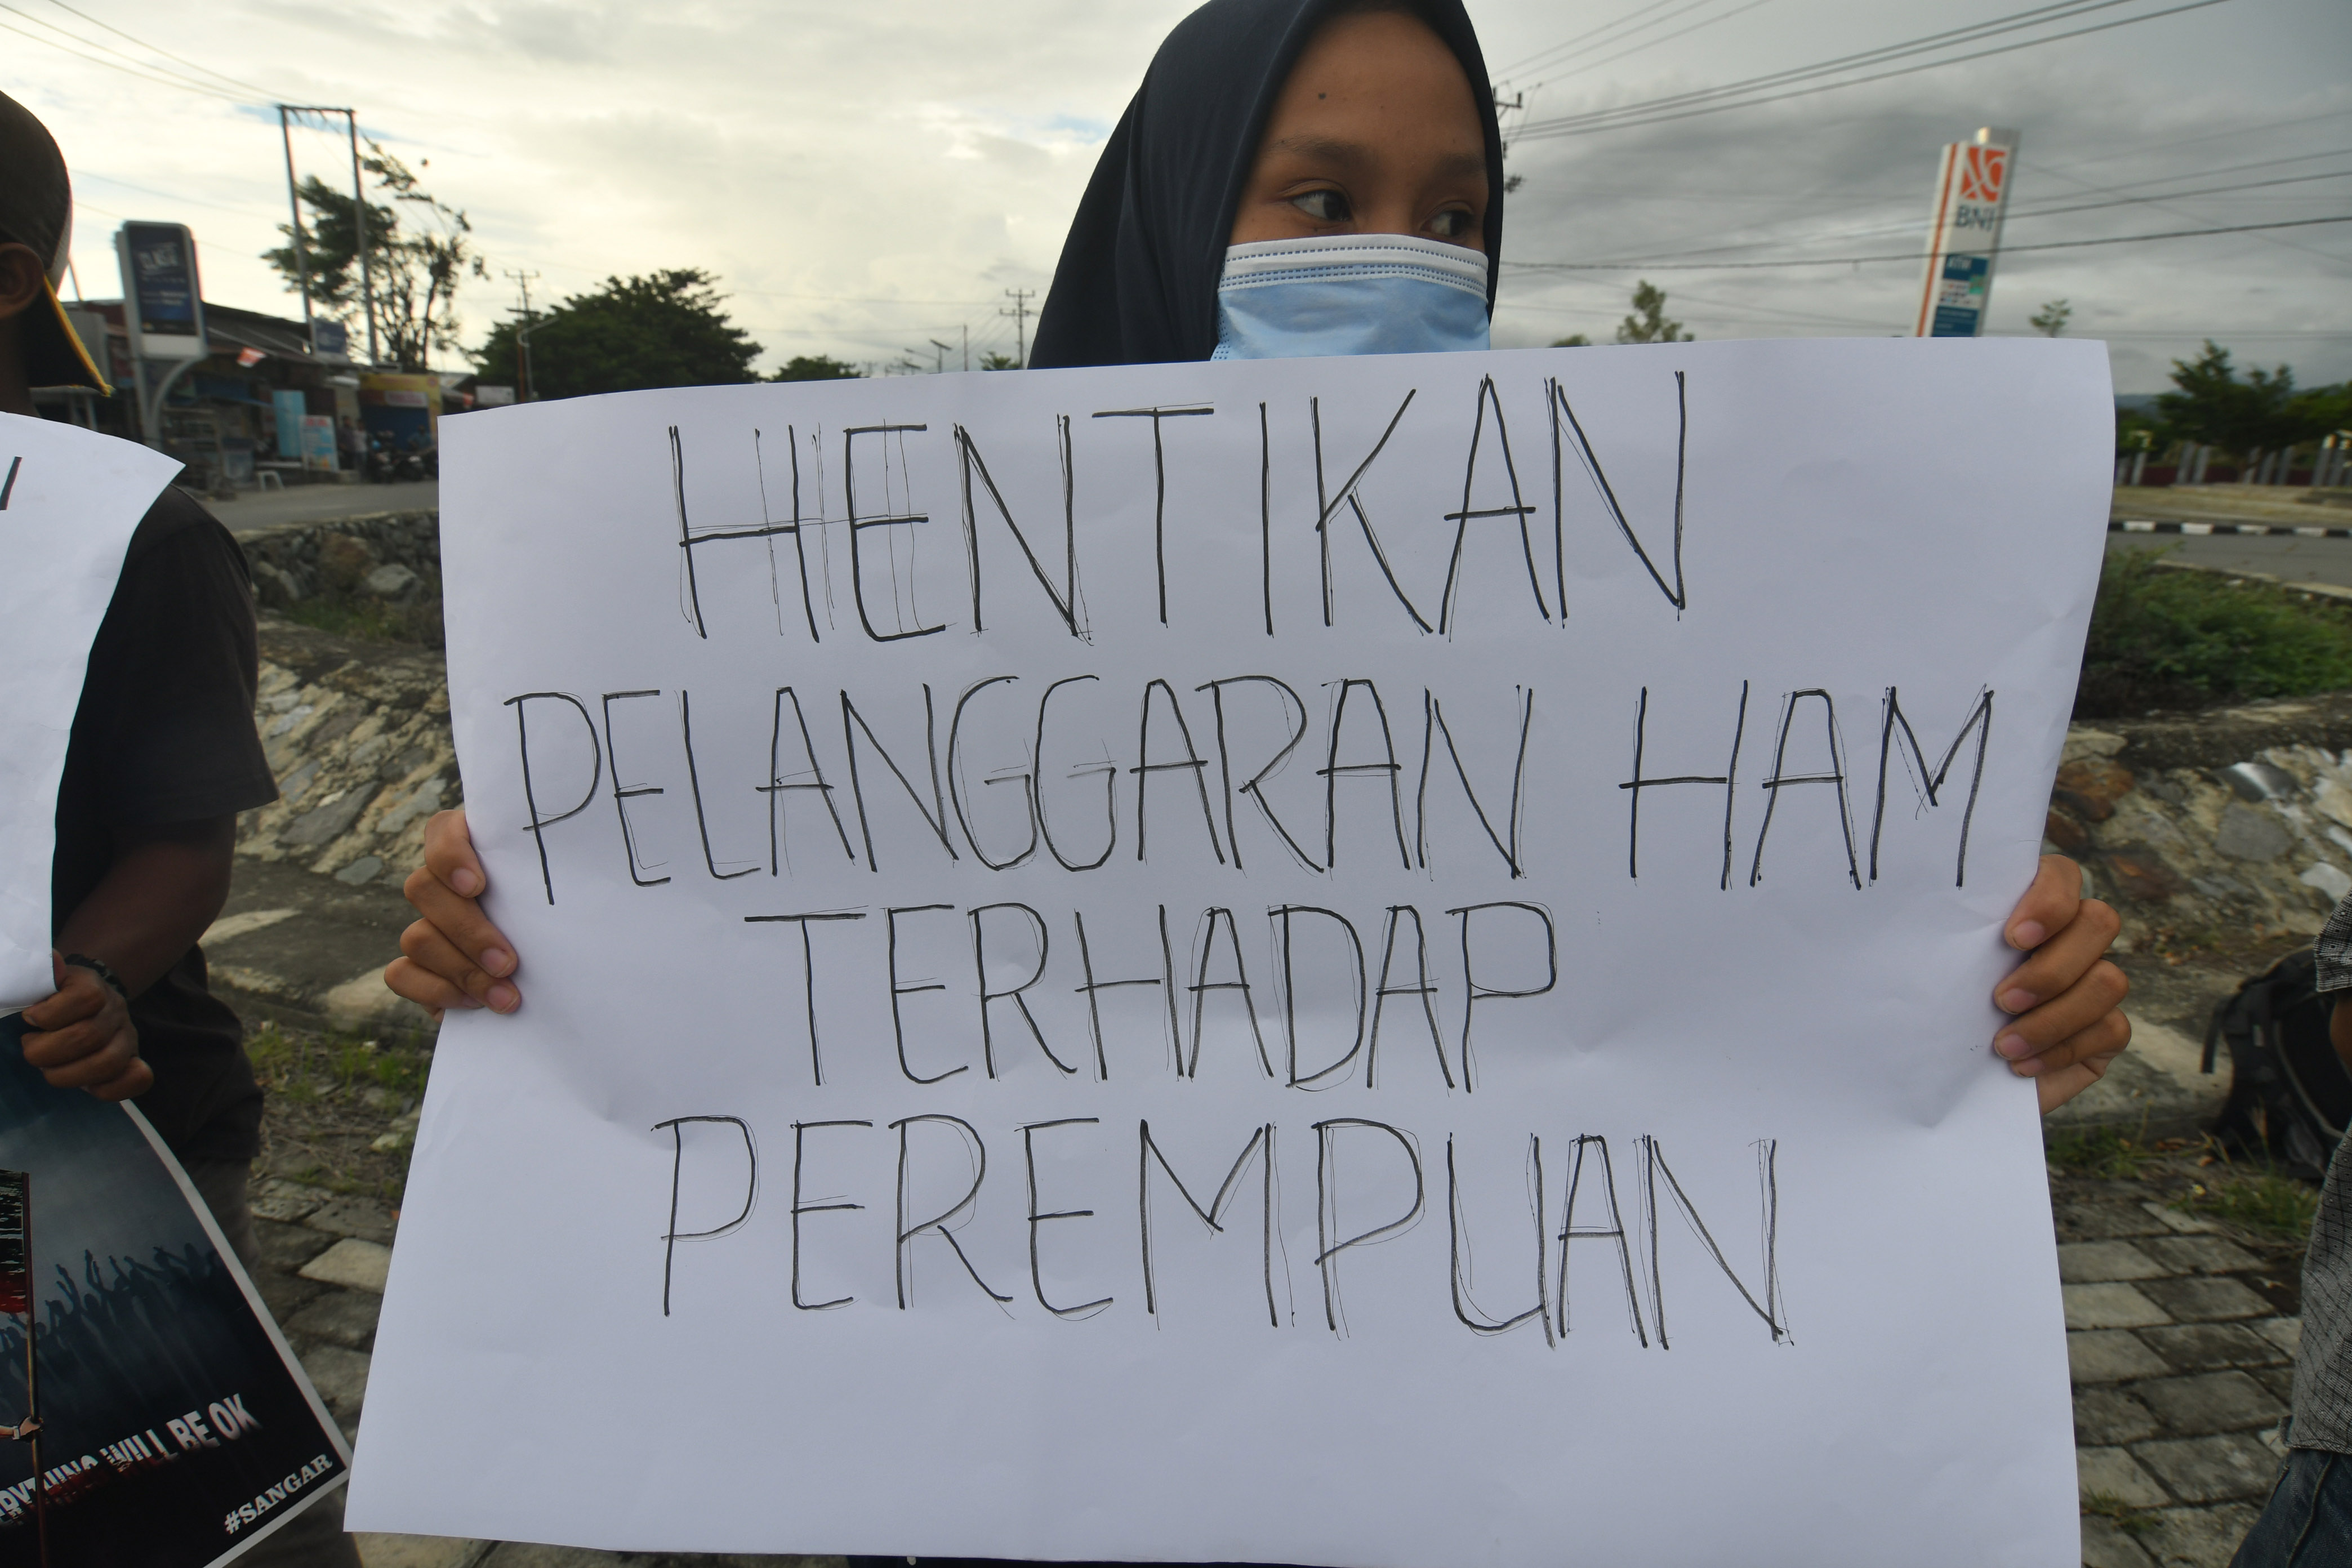 HENTIKAN
PELANGGARAN HAM
TERHADAP
PEREMPUAN
BNI
WILL BE OK
#SANGAR